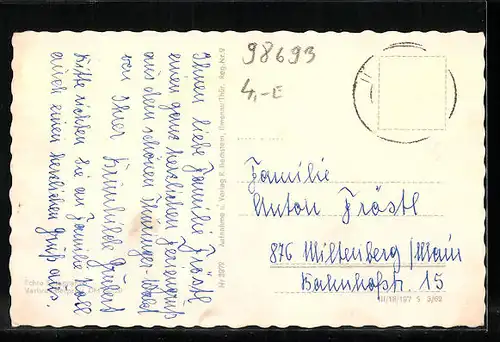 98693
4,-E
Ihnen liebe Familie Fröstl
einen ganz herzlichen Feriengruß
aus dem schönen Thüringer-Wald
von Ihrer Krimhilde
Bitte richten Sie an Familie Noll
auch einen herzlichen Gruß aus.
Aufnahme u. Verlag E. Bechstein, Ilmenau/Thür. Reg.-Nr. 9
Nr 3979
Familie
Anton Fröstl
876 Miltenberg/Main
Bahnhofstr. 15
III/18/197 S 3/69